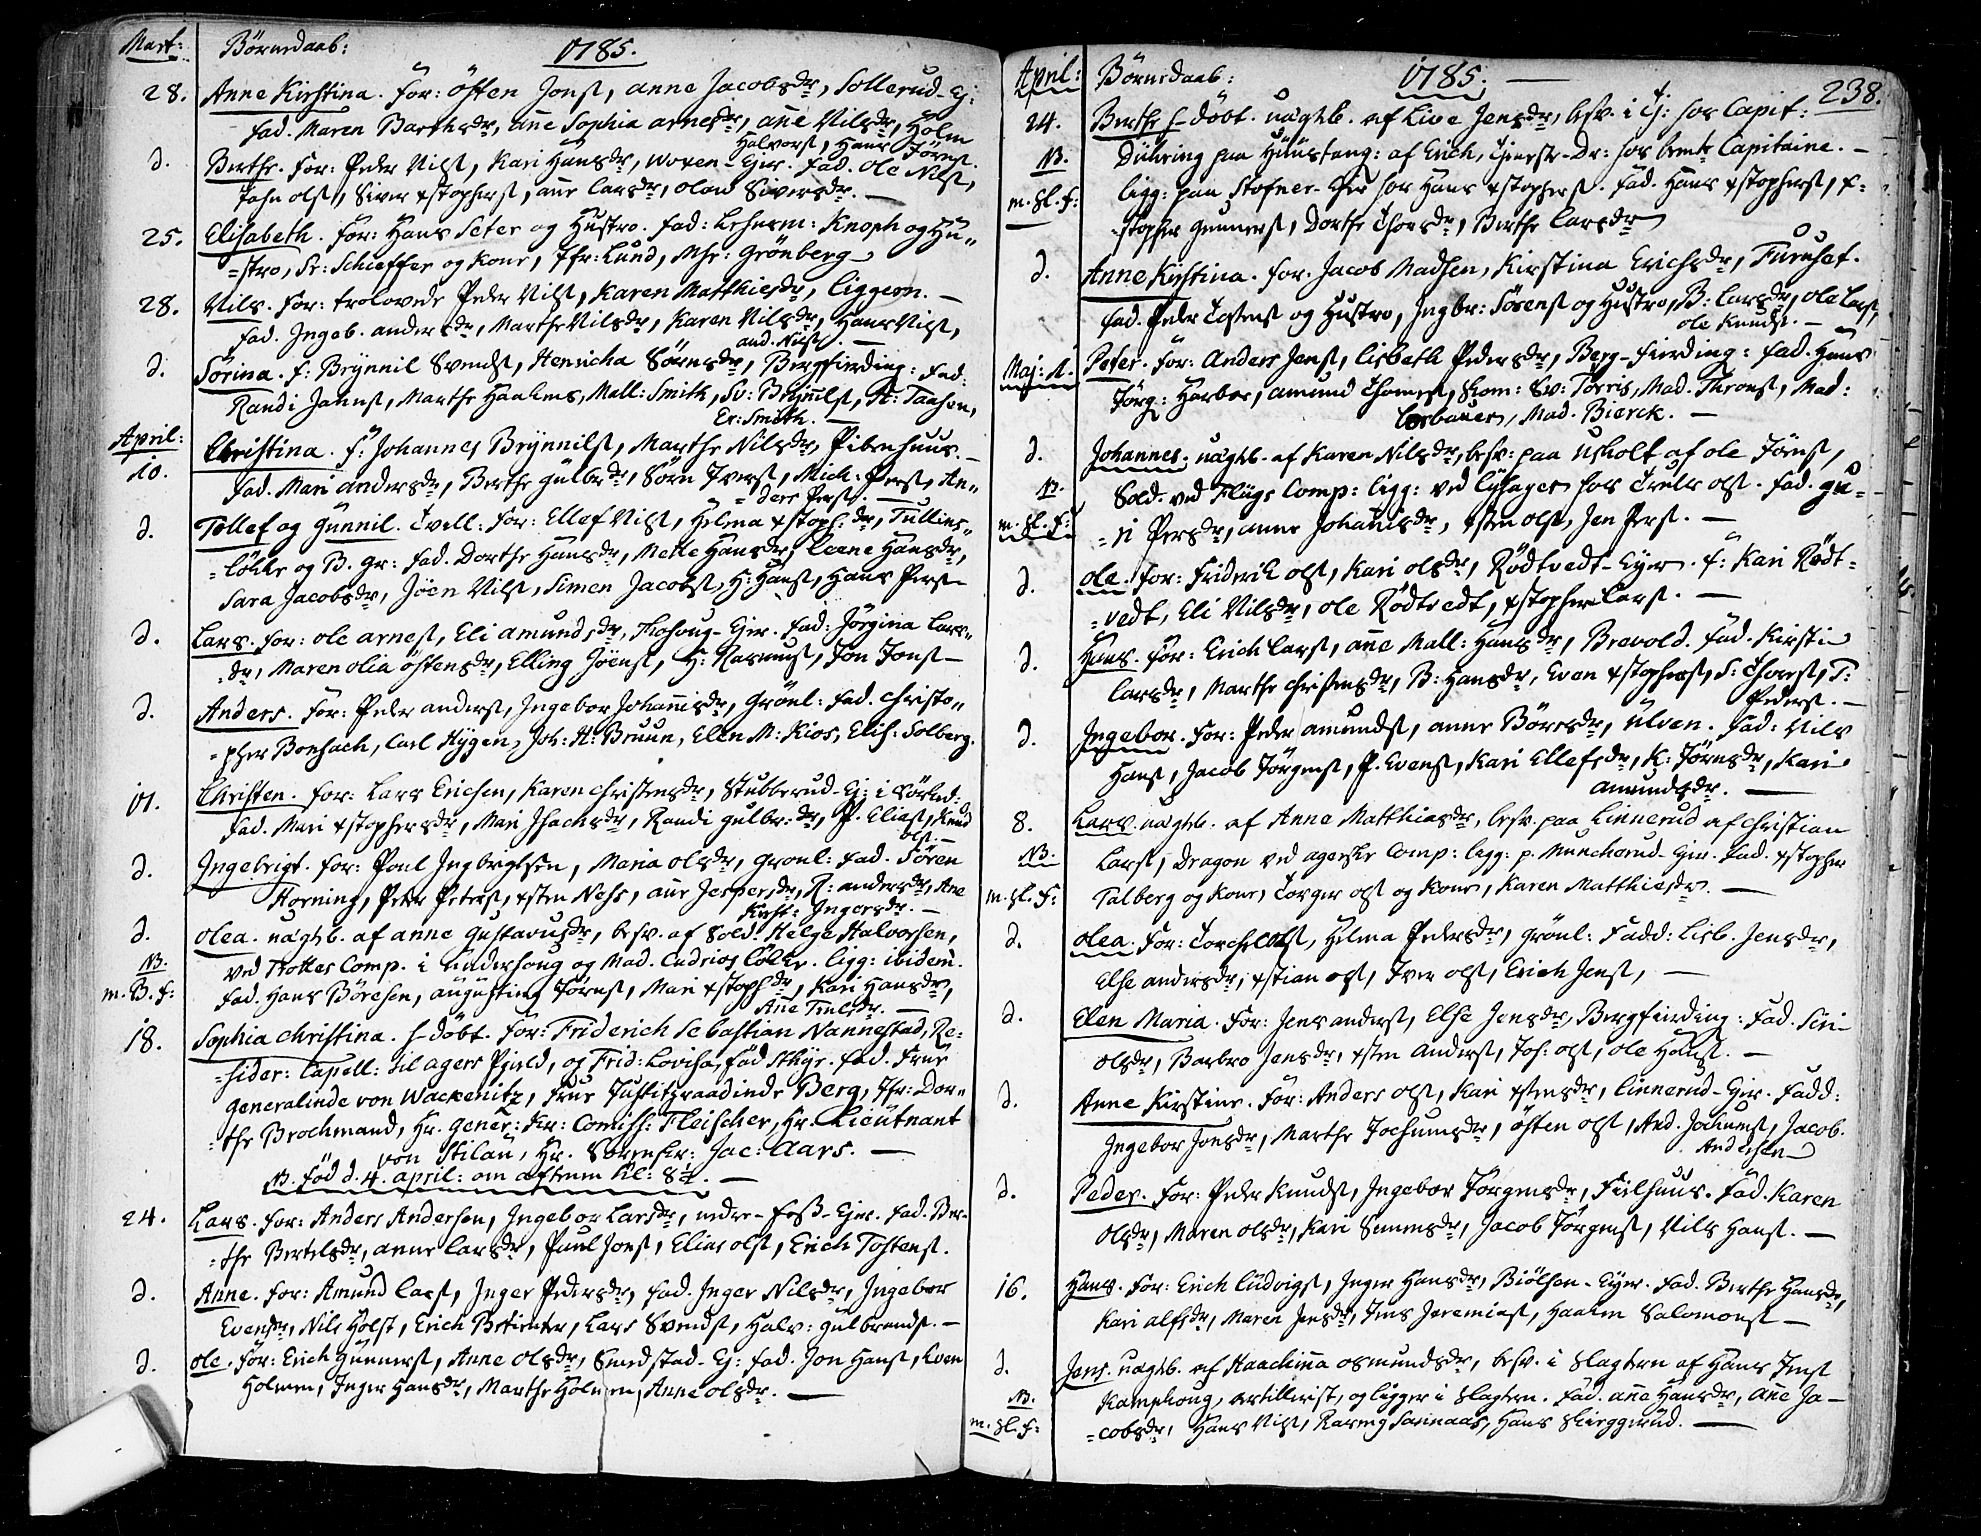 Mart: Börnedaab: 1785.
28. Anne Kirstina. For: Östen Jens, Anne Jacobsdr, Sollerud-Ej:
Fad. Maren Barthsdr, Anne Sophia Arnesdr, Anne Nilsdr, Holm
Halvors, Hans Jörns.
d. Berthe. For: Peder Nils, Kari Hansdr, Woxen-Ejer. Fad. Ole Nils,
John Ols, Siver xstophers, Anne Larsdr, Olaw Siversdr.
25. Elisabeth. For: Hans Seter og Hustro. Fad: Lehnsm: Knoph og Hu-
-stro, Sr: Schieffer og Kone, Jfr: Lund, Mhr: Grönberg
28. Nils. For: trolovede Peder Nils, Karen Matthiesdr, Liggern.
Fad. Ingeb. Andersdr, Marthe Nilsdr, Karen Nilsdr, Hans Nils,
And. Nils.
d. Sörina. F: Brynnil Svends, Henricha Sörnsdr, Bergfierding: Fad:
Randi Janns, Marthe Haakens, Mall: Smith, Sv: Brynnils, H: Taasen,
Er: Smith.
April:
10. Christina. F: Johannes Brynnils, Marthe Nilsdr, Pibenhuus.
Fad. Mari Andersdr, Berthe Gulbrdr, Sörn Ivers, Mich: Pers, An-
-ders Pers.
d. Tollef og Gunnil. Tvill: For: Ellef Nils, Helena xstoph:dr, Tullins-
-lökke og B. Gr: Fad. Dorthe Hansdr, Mette Hansdr, Leene Hansdr,
Sara Jacobsdr, Jöen Nils, Simen Jacobs, H: Hans, Hans Pers
d. Lars. For: Ole Arnes, Eli Amundsdr, -Ejer. Fad: Jörgina Lars-
-dr, Maren Olia Östensdr, Elling Jöens, H: Rasmus, Jon Jons
d. Anders. For: Peder Anders, Ingebor Johannisdr, Grönl: Fad. Christo-
-pher Bonsach, Carl Hygen, Joh: H: Bruun, Elen M: Kios, Elis: Solberg.
17. Christen. For: Lars Erichsen, Karen Christensdr, Stubberud-Ej: i Sörked:
Fad. Mari xstophersdr, Mari Isachsdr, Randi Gulbr:dr, P. Elias, Knud
Ols.
d. Ingebrigt. For: Poul Ingbrgtsen, Maria Olsdr, Gronl: Fad. Sören
Horning, Peder Peters, xsten Ness, Anne Jespersdr, R: Andersdr, Ane
Kirst: Ingersdr.
d. Olea. uægtb. af Anne Gustavusdr, besv. af Sold. Helge Halvorsen,
NB. ved Rottes Comp. i Underhaug og Mad. Cudrios Lökke. ligg: ibidem.
m. B. F: Fad. Hans Börresen, Augustinq Jörns, Mari xstophdr, Kari Hansdr,
Ane Troelsdr.
18. Sophia Christina. H-döbt. For: Friderich Sebastian Nannestad, Re-
-sider: Capell: til Agers Pgield, og Frid: Lovisa, Fød Sthyr. Fad. Frue
Generalinde von Wackenitz, Frue Justitzraadinde Berg, Jfr: Dor-
-the Brochmand, Hr. Gener: Kr: Comiss: Fleischer, Hr. Lieutnant
von Stilau, Hr. Sorenskr: Jac: Aars.
NB. Föd d. 4. April: om aftenen kl: 8½.
24. Lars. For: Anders Andersen, Ingebor Larsdr, nedre-Foss-Ejer. Fad. Ber-
-the Bertelsdr, Anne Larsdr, Paul Jons, Elias Ols, Erich Tostens.
d. Anne. For: Amund Lars, Inger Pedersdr, Fad. Inger Nilsdr, Ingebor
Evensdr, Nils Holst, Erich , Lars Svends, Halv: Gulbrands.
d. Ole. For: Erich Gunners, Anne Olsdr, Smedstad-Ej: Fad. Jon Hans, Even
Holmen, Inger Hansdr, Marthe Holmen, Anne Olsdr.
April: Börnedaab: 1785. 238.
24. Berthe H-döbt. uægtb. af Live Jensdr, besv. i Tj: hos Capit:
NB. Dühring paa Huustang: af Erich, Tjeneste-Dr: hos bemte Capitaine.
m. Sl. F: ligg: paa Stofner-Ejer hos Hans xstophers. Fad. Hans xstophers, x-
-stopher Gunners, Dorthe Thorsdr, Berthe Larsdr
d. Anne Kirstina. For: Jacob Madsen, Kirstina Erichsdr, Furuset.
Fad. Peder Tostens og Hustro, Ingbr: Sörens og Hustro, B: Larsdr, Ole Lars,
Ole Knuds.
Maj: 1. Peter. For: Anders Jens, Lisbeth Pedersdr, Berg-Fierding: Fad. Hans
Jörg: Harboe, Amund Thomes, Skom: Sv: Torris, Mad. Throns, Mad:
Losbauer, Mad. Bierck.
d. Johannes. uægtb. af Karen Nilsdr, besv: paa Usholt af Ole Jörns,
NB. Sold. ved Flügs Comp: ligg: ved Lysager hos Truls Ols. Fad. Gu-
m. Sl. F: -ri Persdr, Anne Johannisdr, xsten Ols, Jen Pers.
d. Ole. For: Friderik Ols, Kari Olsdr, Rödtvedt-Eyer. F: Kari Rödt-
-vedt, Eli Nilsdr, Ole Rödtvedt, xstopher Lars.
d. Hans. For: Erich Lars, Ane Mall: Hansdr, Brevold. Fad. Kirsti
Larsdr, Marthe Christensdr, B: Hansdr, Even xstophers, S: Thors, T:
Peders.
d. Ingebor. For: Peder Amunds, Anne Börresdr, Ulven. Fad: Nils
Hans, Jacob Jörgens, P. Evens, Kari Ellefsdr, K: Jörnsdr, Kari
Amundsdr.
8. Lars. uægtb. af Anne Matthiasdr, besv. paa Linnerud af Christian
NB. Lars, Dragon ved Agerske Comp: ligg: p. Munckerud-Ejer. Fad. xstopher
m. Sl. F: Talberg og Kone, Torger Ols og Kone, Karen Matthiesdr.
d. Olea. For: Torchel Ols, Helena Pedersdr, Grönl: Fadd: Lisb. Jensdr,
Else Andersdr, xstian Ols, Iver Ols, Erich Jens,
d. Elen Maria. For: Jens Anders, Else Jensdr, Bergfierding: Fad. Siri
Olsdr, Barbro Jensdr, xsten Anders, Joh: Ols, Ole Hans.
d. Anne Kirstine. For: Anders Ols, Kari xstensdr, Linnerud-Ejer. Fadd:
Ingebor Jonsdr, Marthe Jochumsdr, Östen Ols, And. Jochums, Jacob
Andersen
d. Peder. For: Peder Knuds, Ingebor Jörgensdr, Fielhuus. Fad. Karen
Olsdr, Maren Olsdr, Kari Simensdr, Jacob Jörgens, Nils Hans.
16. Hans. For: Erich Ludvigs, Inger Hansdr, Biölsen-Eyer. Fad. Berthe Hansdr,
Kari Alfsdr, Maren Jensdr, Jens Jeremias, Haaken Salomons
d. Jens. uægtb. af Haachina Osmundsdr, besv. i Slagtern af Hans Jens
NB. Kamphoug, Artillerist, og ligger i Slagtern. Fad. Ane Hansdr, Ane Ja-
m. Sl. F: -cobsdr, Hans Nils, Rasmg Sarinaas, Hans Skieggerud.